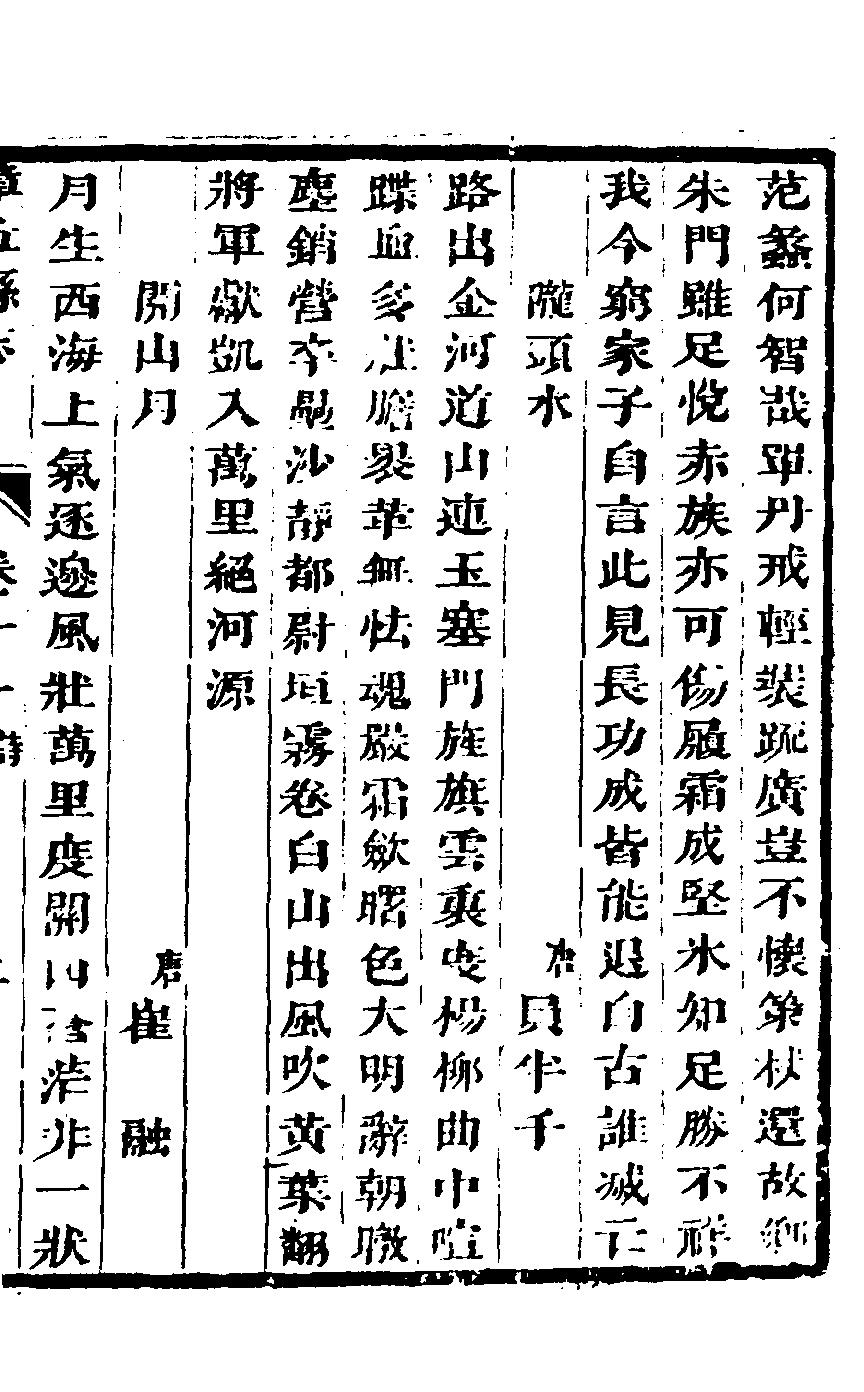 范蠡何智哉單丹戒輕裝疏廣豈不懷策杖還故鄉
朱門雖足悅赤族亦可傷履霜成堅氷知足勝不祥
我今窮家子自言此見長功成皆能退自古誰滅亡
隴頭水
唐員半千
路出金河道山連玉塞門旌旗雲裏度楊柳曲中喧
蹀血多壯膽裂革無怯魂嚴霜歛曙色大明辭朝暾
塵銷營卒壘沙靜都尉垣霧卷白山出風吹黃葉翻
將軍獻凱入萬里絕河源
關山月
唐崔融
月生西海上氣逐邊風壯萬里度關山蒼茫非一狀
章丘縣志
卷十
詩